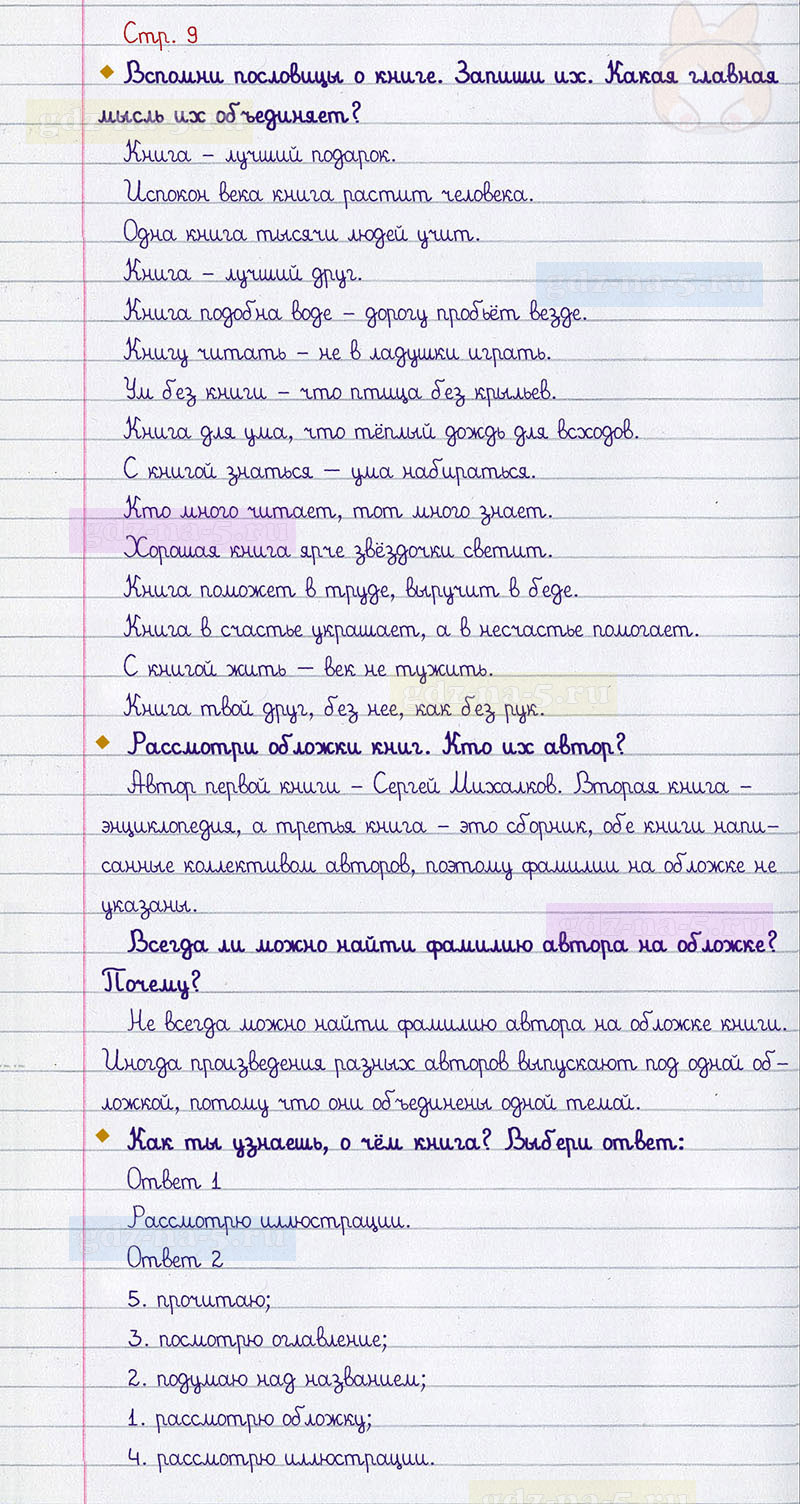 Стр. 9
Вспомни пословицы о книге. Запиши их. Какая главная
мысль их объединяет?
gdz-na-5.ru
Книга – лучший подарок.
Испокон века книга растит человека.
Одна книга тысячи людей учит.
Книга – лучший друг.
gdz-na-5.ru
Книга подобна воде – дорогу пробьёт везде.
Книгу читать – не в ладушки играть.
Ум без книги – что птица без крыльев.
Книга для ума, что тёплый дождь для всходов.
С книгой знаться — ума набираться.
Кто много читает, тот много знает.
gdz-na-5.ru
Хорошая книга ярче звёздочки светит.
Книга поможет в труде, выручит в беде.
Книга в счастье украшает, а в несчастье помогает.
С книгой жить — век не тужить.
gdz-na-5.ru
Книга твой друг, без нее, как без рук.
Рассмотри обложки книг. Кто их автор?
Автор первой книги – Сергей Михалков. Вторая книга –
энциклопедия, а третья книга – это сборник, обе книги напи–
санные коллективом авторов, поэтому фамилии на обложке не
указаны.
gdz-na-5.ru
Всегда ли можно найти фамилию автора на обложке?
Почему?
Не всегда можно найти фамилию автора на обложке книги.
Иногда произведения разных авторов выпускают под одной об–
ложкой, потому что они объединены одной темой.
Как ты узнаешь, о чём книга? Выбери ответ:
Ответ 1
Рассмотрю иллюстрации.
gdz-na-5.ru
Ответ 2
5. прочитаю;
3. посмотрю оглавление;
2. подумаю над названием;
1. рассмотрю обложку;
4. рассмотрю иллюстрации.
gdz-na-5.ru